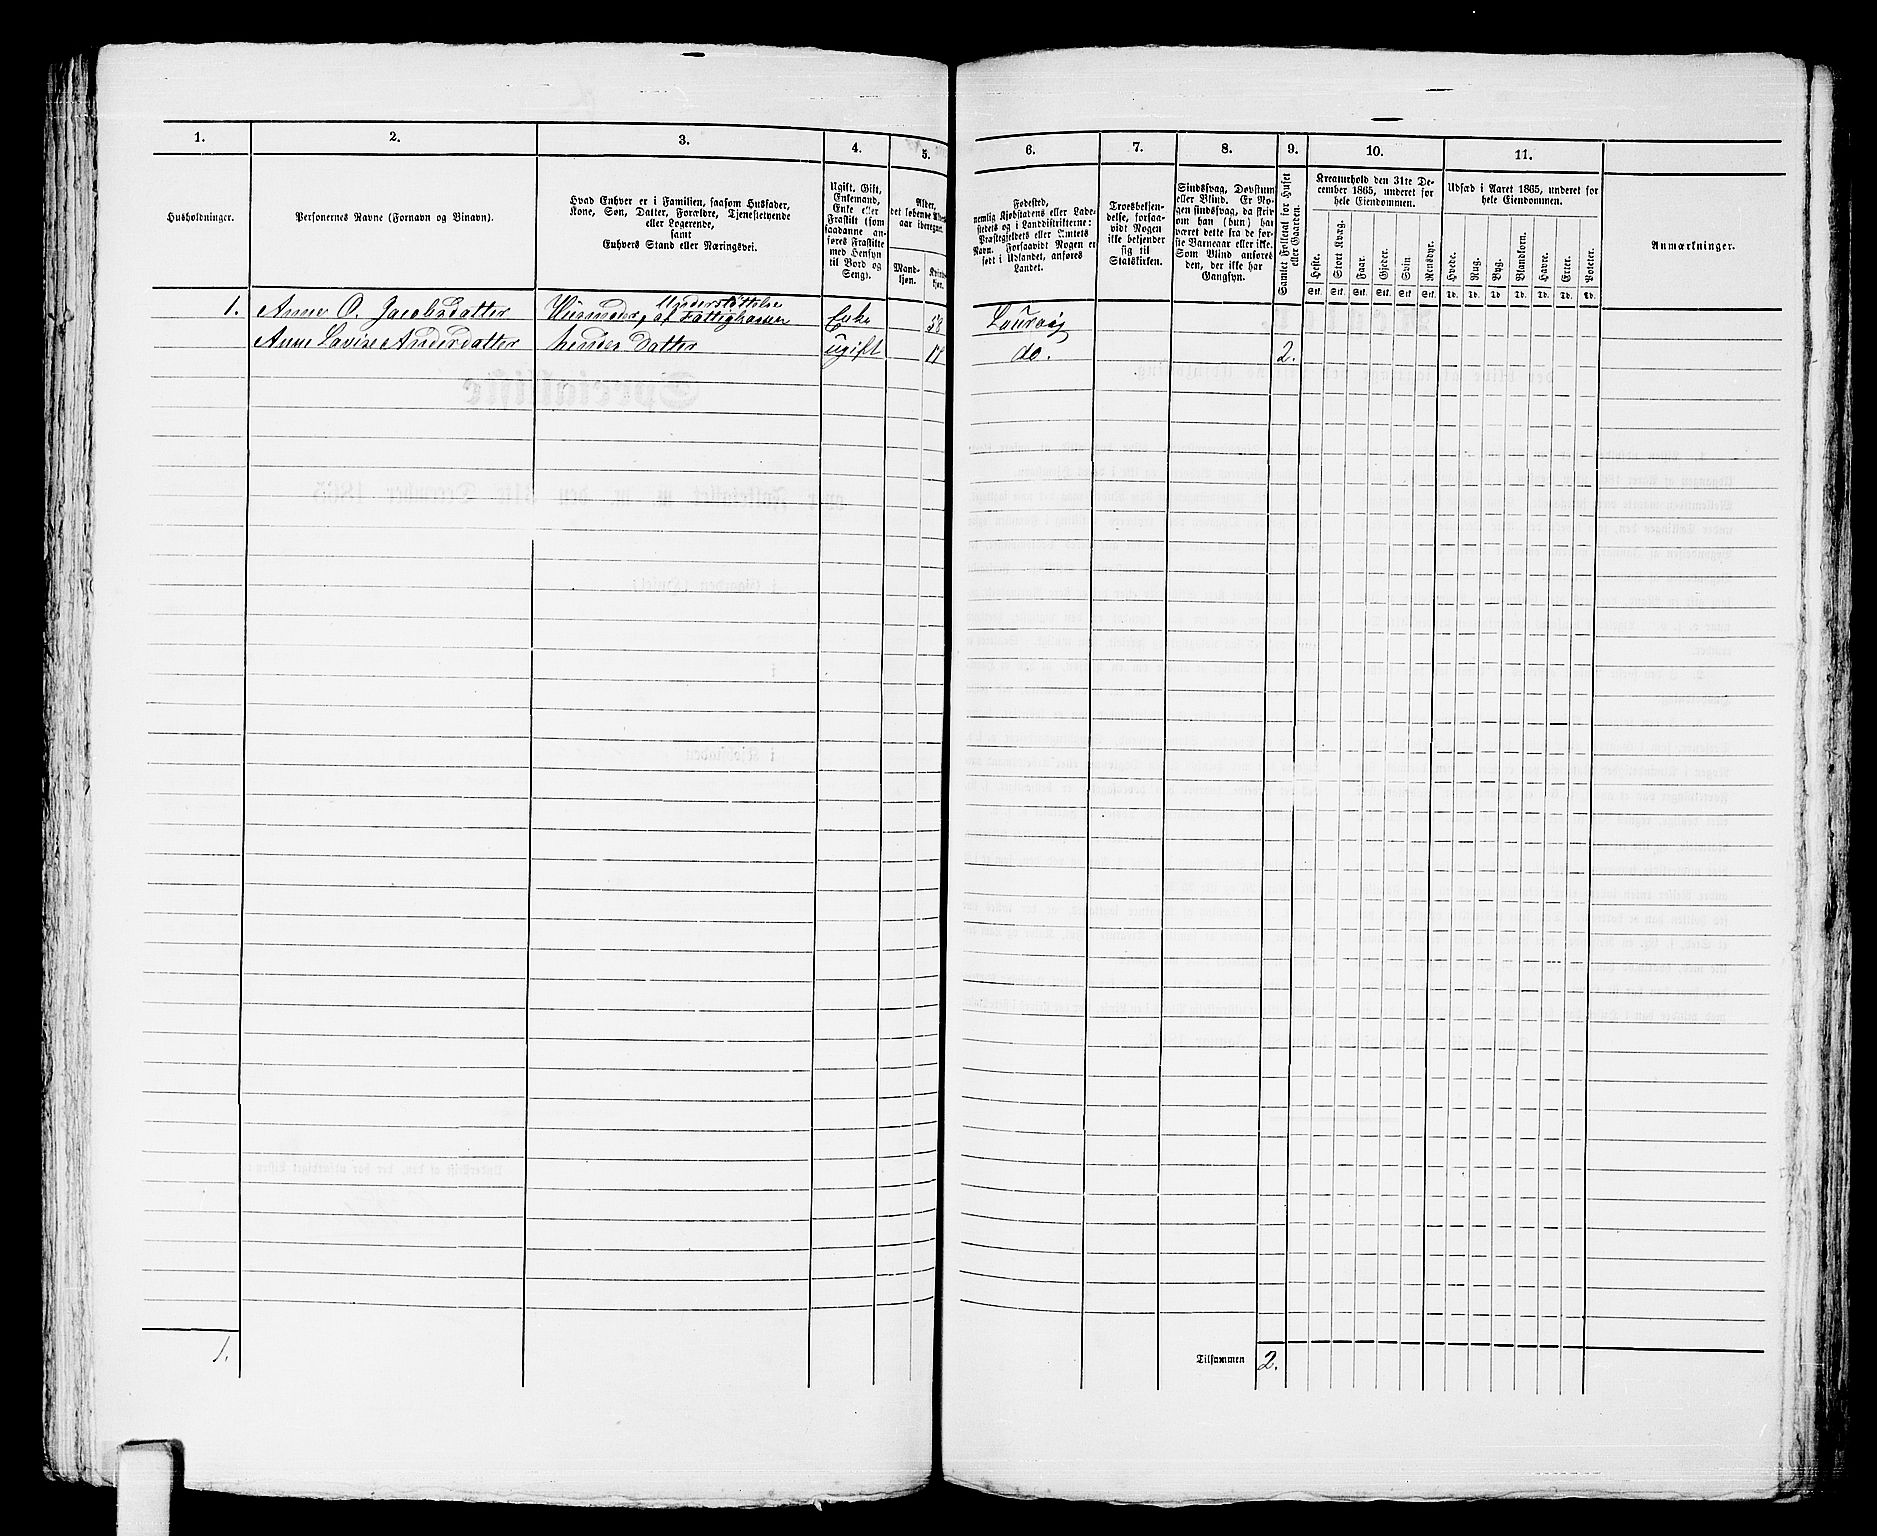 1. 2. 3. 4. 5. 6. 7. 8. 9. 10. 11.
Husholdninger.
Personernes Navne (Fornavn og Binavn).
Hvad Enhver er i Familien, saasom Husfader,
Kone, Søn, Datter, Forældre, Tjenestetyende
eller Logerende,
samt
Enhvers Stand eller Næringsvei.
Ugift, Gift,
Enkemand,
Enke eller
Fraskilt (som
saadanne an-
føres Fraskilte
med Hensyn
til Bord og
Seng).
Alder,
det løbende Alders-
aar iberegnet.
Mand-
kjøn.
Kvinde-
kjøn.
Fødested,
nemlig Kjøbstadens eller Lade-
stedets og i Landdistrikterne:
Præstegjeldets eller Amtets
Navn. Forsaavidt Nogen er
født i Udlandet, anføres
Landet.
Troesbekjen-
delse, forsaa-
vidt Nogen
ikke bekjender
sig til
Statskirken.
Sindssvag, Døvstum
eller Blind. Er No-
gen sindssvag, da skriv
om han (hun) har
været dette fra de før-
ste Barneaar eller ikke.
Som Blind anføres
den, der ikke har
Gangsyn.
Samlet Folketal for Huset
eller Gaarden.
Kreaturhold den 31te De-
cember 1865, underet for
hele Eiendommen.
Heste. Stort Kvæg. Faar. Gjeder. Svin. Rensdyr.
Stk. Stk. Stk. Stk. Stk. Stk.
Udsæd i Aaret 1865, underet for
hele Eiendommen.
Hvede. Rug. Byg. Blandkorn. Havre. Erter. Poteter.
Td. Td. Td Td. Td. Td. Td.
Anmærkninger.
1. Anne O. Jacobsdatter Huusmoder, Understøttelse af Fattigkassen Enke 58 Laurvig
Anne Lavise Andersdatter hendes Datter ugift do. 2.
1. Tilsammen 2.